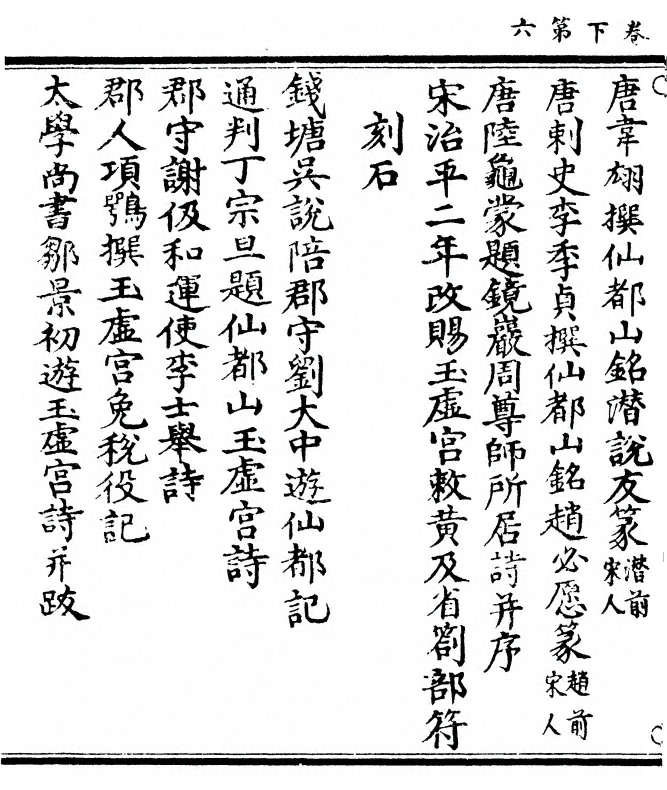 卷下第六
唐韋翃撰仙都山銘潜說友篆潜前宋人
唐刺史李季貞撰仙都山銘趙必愿篆趙前宋人
唐陸龜蒙題鏡巖周尊師所居詩并序
宋治平二年改賜玉虛宮敕黃及省劄部符
刻石
錢塘吳說陪郡守劉大中遊仙都記
通判丁宗旦題仙都山玉虛宮詩
郡守謝伋和運使李士舉詩
郡人項鶚撰玉虛宮免稅役記
太學尚書鄒景初遊玉虛宮詩并跋